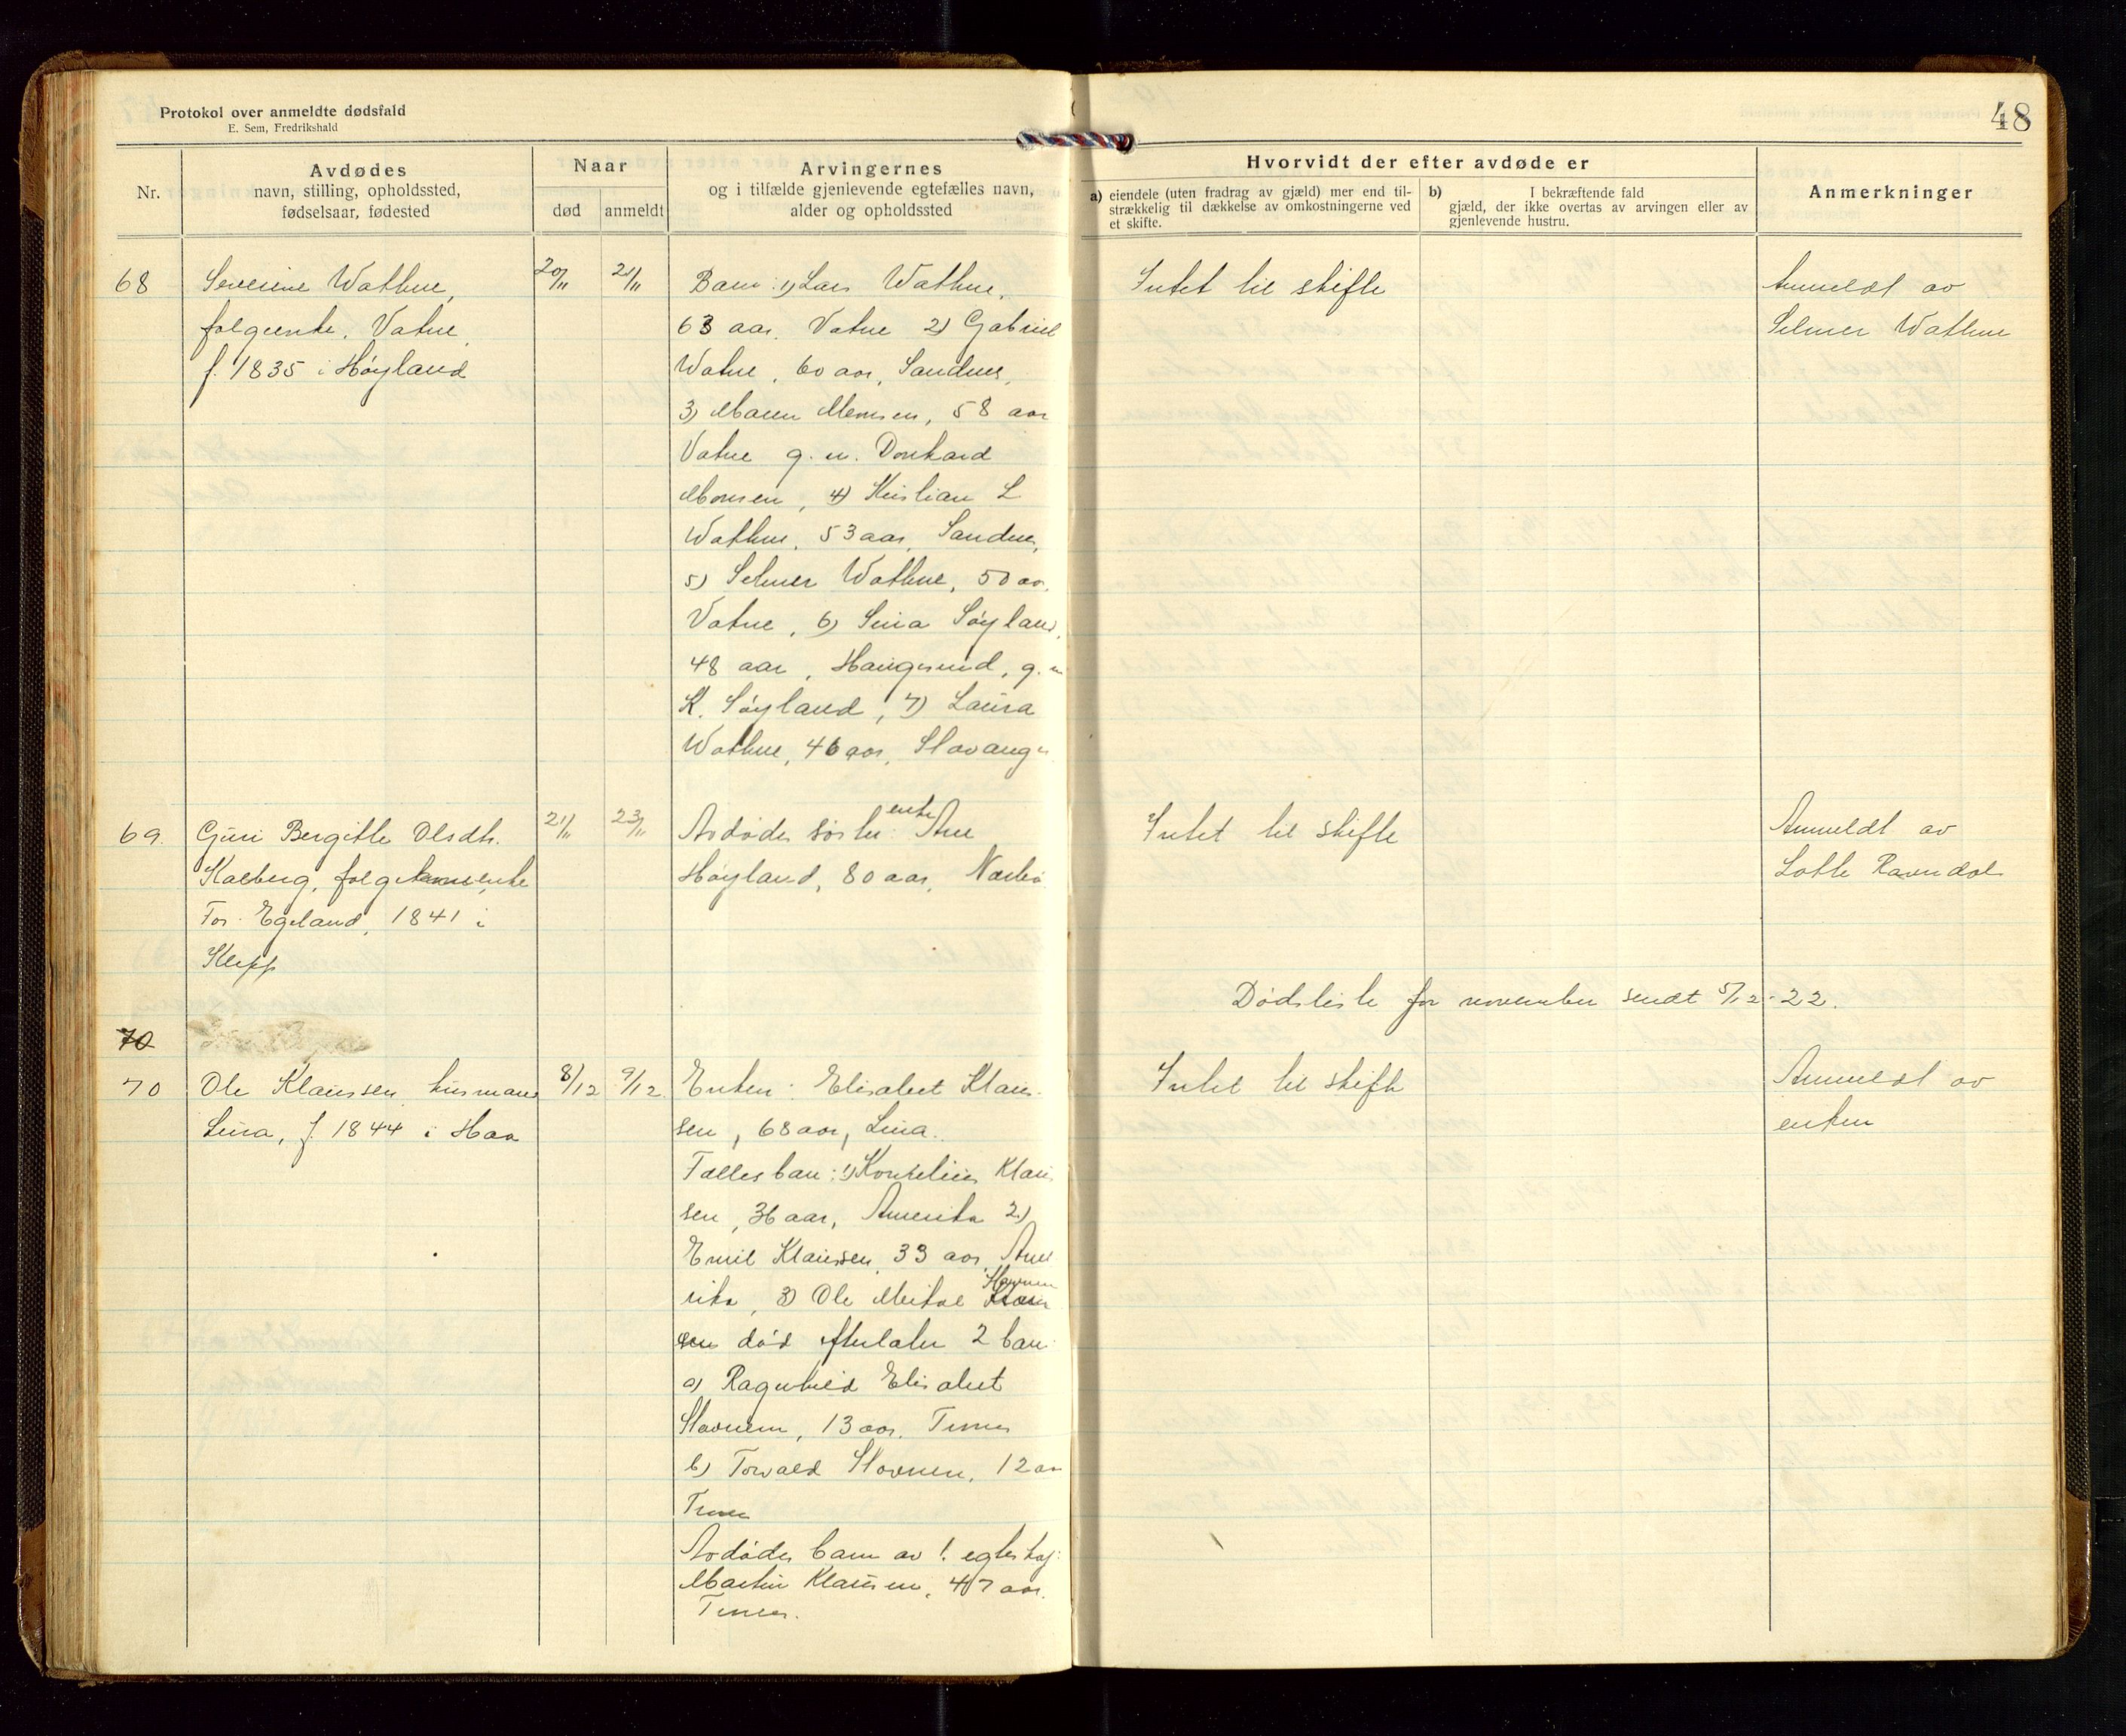 Protokol over anmeldte dødsfald
E. Sem, Fredrikshald
48
Nr.
Avdødes
navn, stilling, opholdssted,
fødselsaar, fødested
Naar
død
anmeldt
Arvingernes
og i tilfælde gjenlevende egtefælles navn,
alder og opholdssted
Hvorvidt der efter avdøde er
a) eiendele (uten fradrag av gjæld) mer end til-
strækkelig til dækkelse av omkostningerne ved
et skifte.
b) I bekræftende fald
gjæld, der ikke overtas av arvingen eller av
gjenlevende hustru.
Anmerkninger
68
Severine Wathne,
folgeenke, Vatne,
f. 1835 i Høyland
20/11
21/11
Barn: 1) Lars Wathne,
63 aar, Vatne 2) Gabriel
Watne, 60 aar, Sandnes,
3) Maren Monsen, 58 aar
Vatne g. m.
Monsen, 4) Kristian L
Wathne, 53 aar, Sandnes,
5) Selmer Wathne, 50 aar,
Vatne, 6) Sina Søyland,
48 aar, Haugesund, g. m
K. Søyland, 7) Laura
Wathne, 46 aar, Stavanger
Intet til skifte
Anmeldt av
Selmer Wathne
69.
Guri Bergitte Olsdtr.
Kalberg, folgeenke
Tor. Egeland, 1841 i
Klepp
21/11
23/11
Avdødes søster: enke Ane
Høyland, 80 aar, Nærbø
Intet til skifte
Anmeldt av
Lotte Ravndal
Dødsliste for november sendt 5/12-22.
70
70
Ole Klaussen husmand
Lina, f. 1844 i Haa
8/12
9/12
Enken: Elisabet Klaus-
sen, 68 aar, Lina.
Fælles barn: 1) Kornelius Klaus
sen, 36 aar, Amerika 2)
Emil Klaussen, 33 aar, Ame
rika, 3) Ole Mikal
sen død efterlater 2 barn
a) Ragnhild Elisabet
Stavnem, 13 aar. Time
b) Torvald Stavnem, 12 aar
Time
Avdødes barn av 1. egteskap:
Martin Klausen, 47 aar.
Time.
Intet til skifte
Anmeldt av
enken